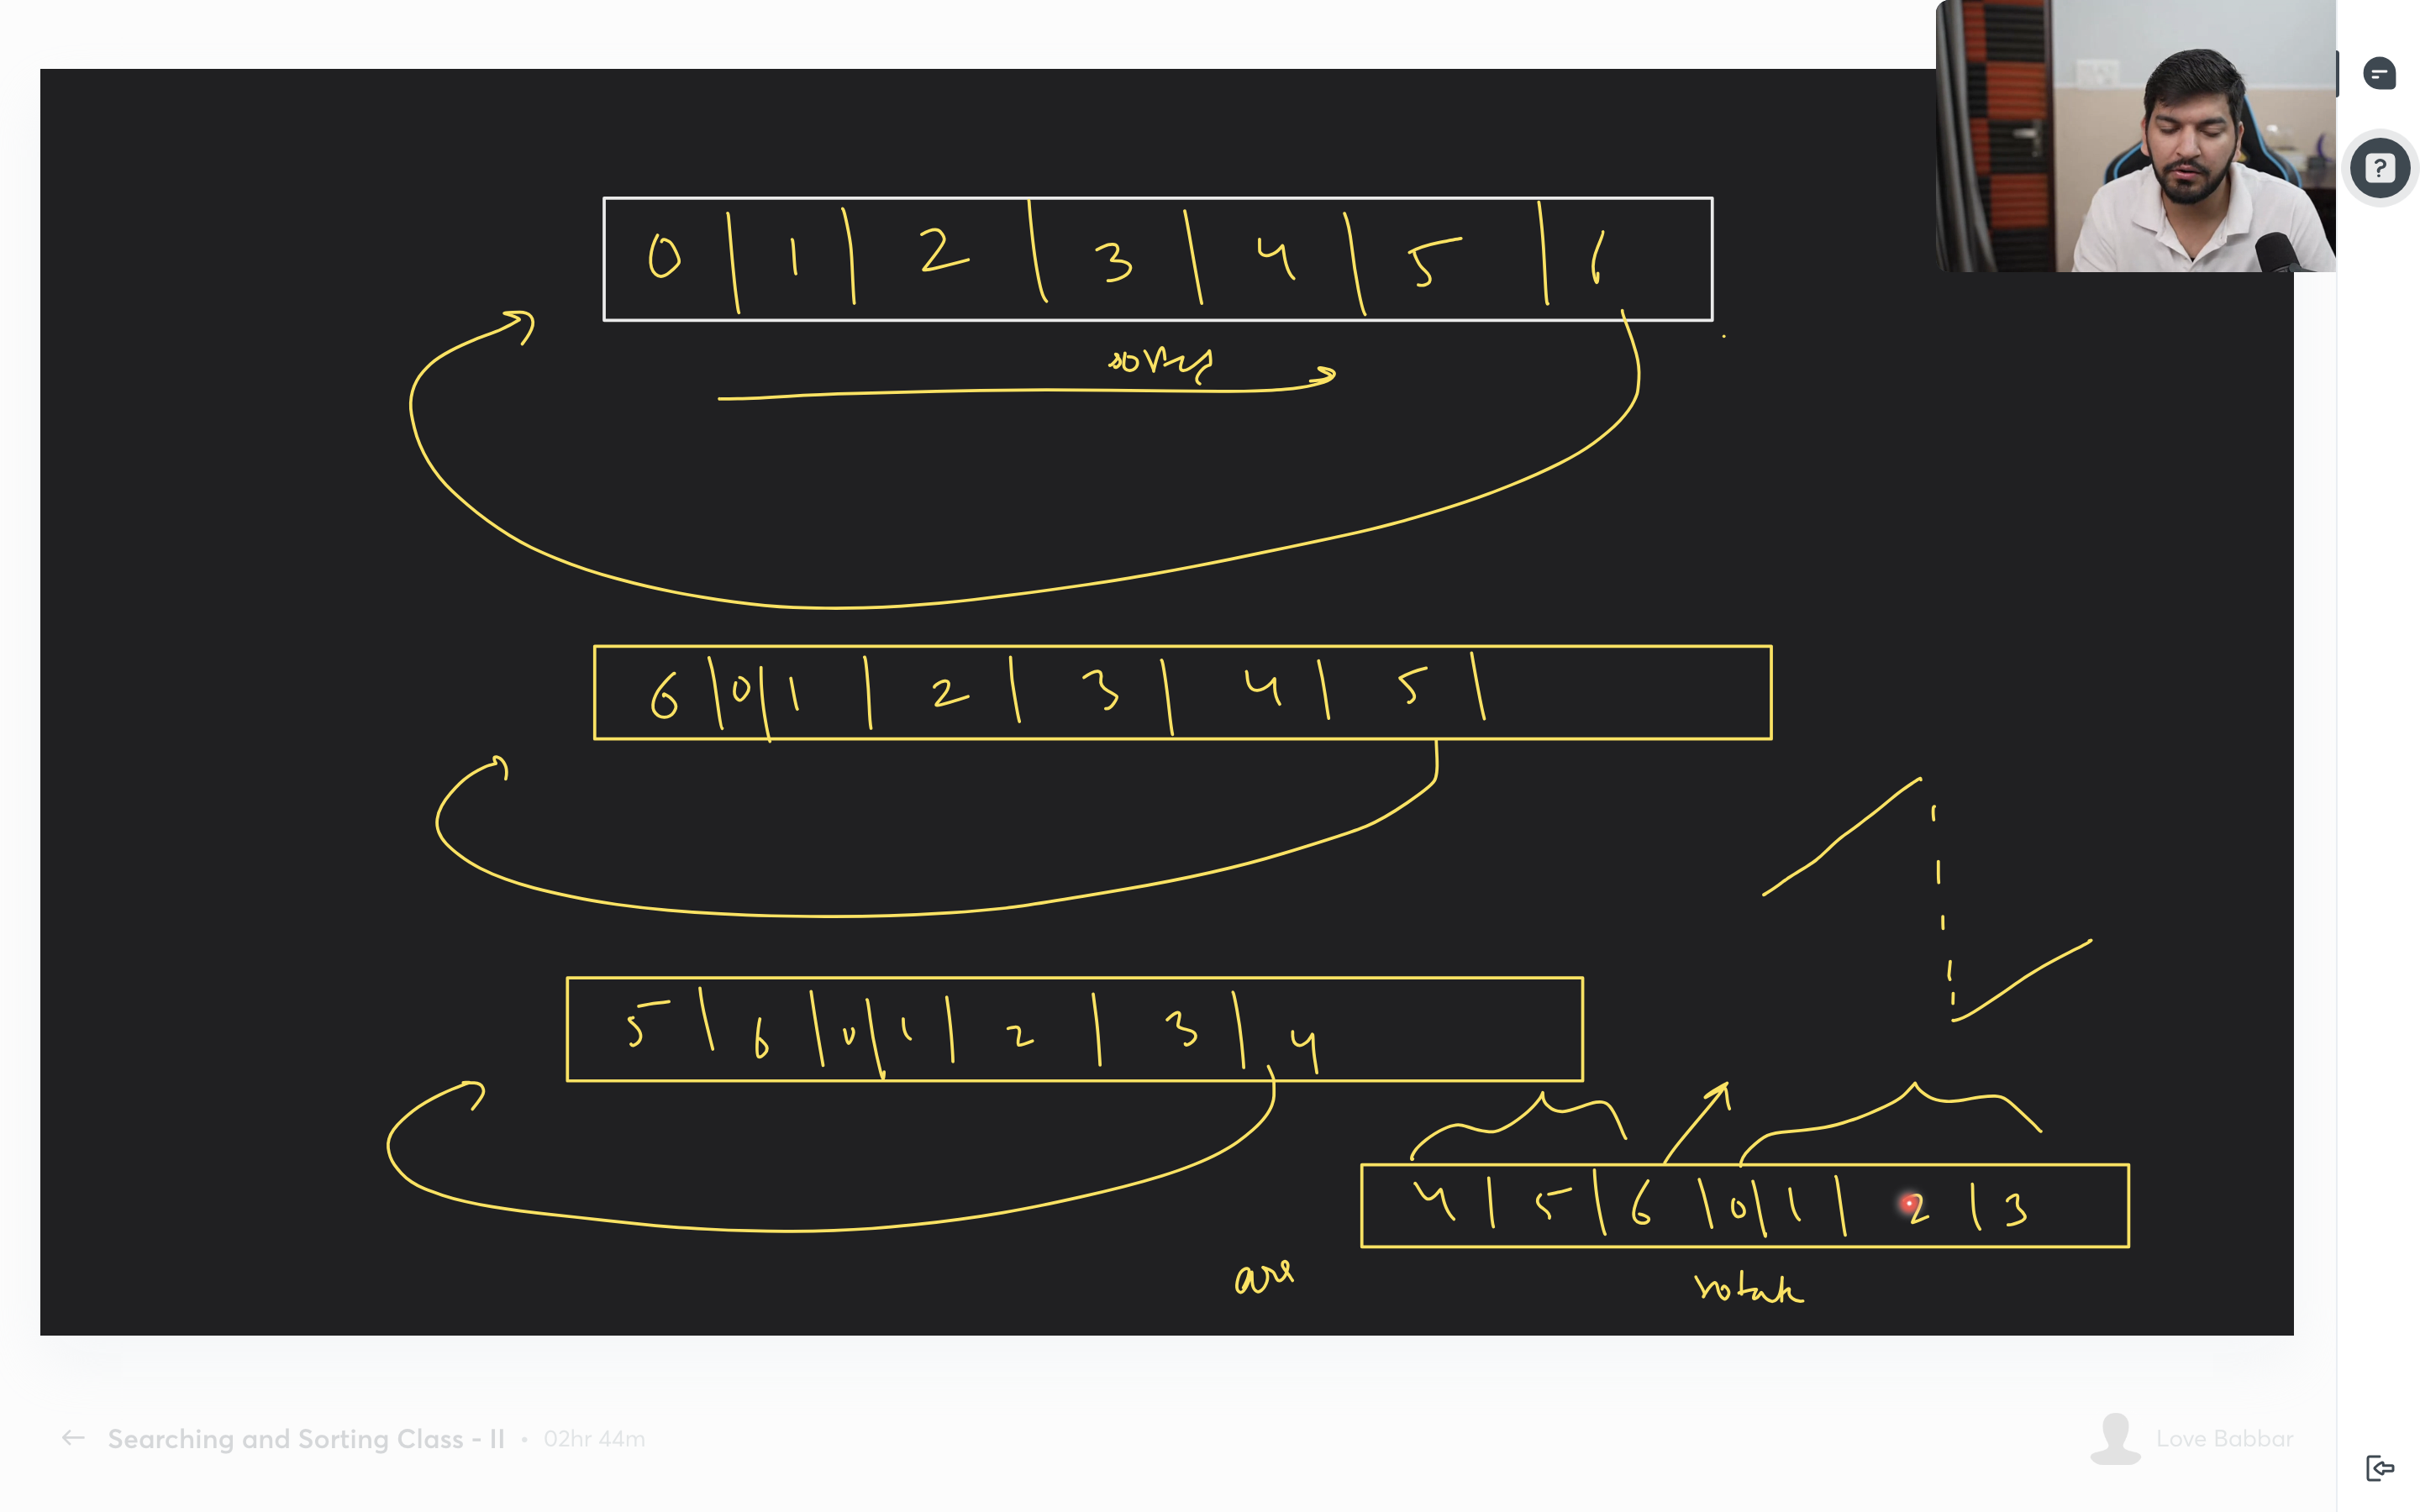 0 | 1 | 2 | 3 | 4 | 5 | 6
sorted
6 | 0 | 1 | 2 | 3 | 4 | 5 |
5 | 6 | 0 | 1 | 2 | 3 | 4
4 | 5 | 6 | 0 | 1 | 2 | 3
arr
rotate
?
Searching and Sorting Class - II • 02hr 44m
Love Babbar